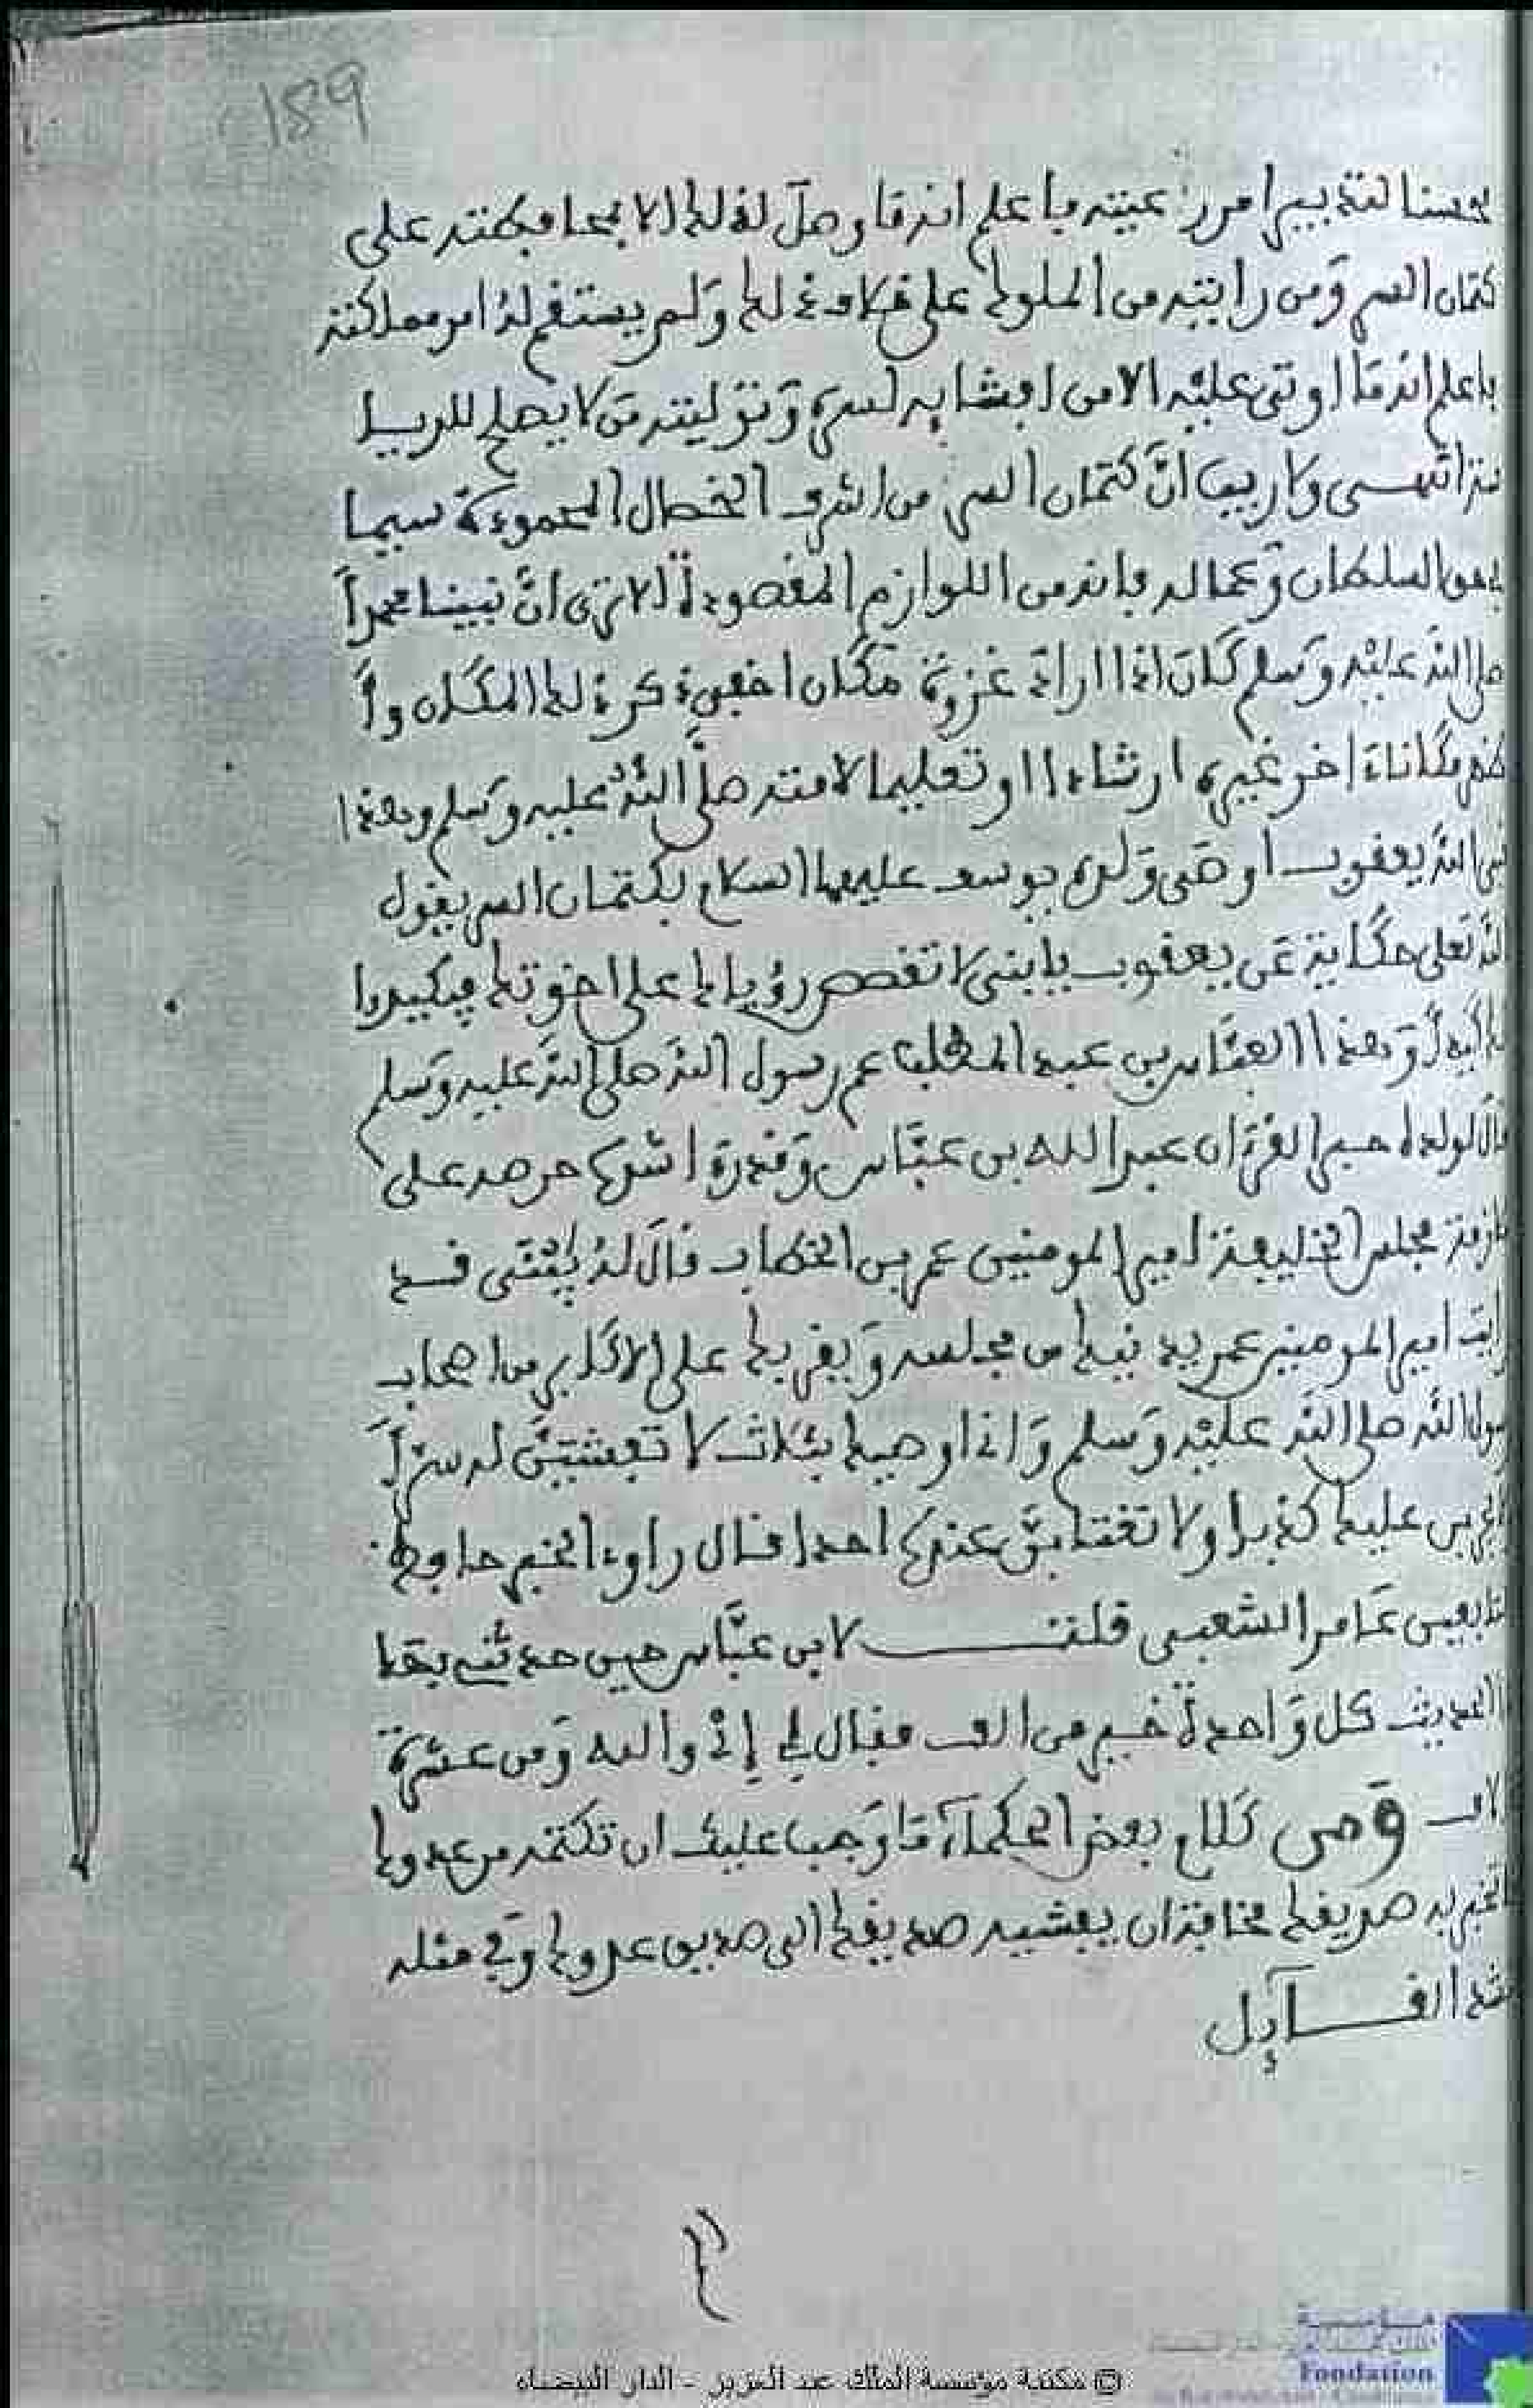 189
محسنا لتدبير امور رعيته فاعلم انه ما وصل لذلك الا بمحافظته على
كتمان السر وَمن رايته من الملوك على خلاف ذلك وَلم يستقم له امر مملكته
فاعلم انه ما اوتي عليه الا من افشايه لسره وَتوليته من لا يصلح للريا
انتهـى ولا ريب انّ كتمان السر من اشرف الخصال المحمودة سيما
في حق السلطان وَعماله فانه من اللوازم المقصودة الا ترى انّ نبينا محمداً
صلى الله عليه وَسلم كان اذا اراد غزوة مكان اخفى ذكر ذلك المكان وا
ظهر مكانا اخر غيره ارشادا او تعليما لامته صلّى الله عليه وَسلم وهذا
نبي الله يعقوب اوصى وَلده يوسف عليهما السلام بكتمان السر يقول
الله تعلى حكاية عن يعقوب يابني لا تقصص رؤياك على اخوتك فيكيدوا
لك كيدا وَهذا العبّاس بن عبد المطلب عم رسول الله صلى الله عليه وَسلم
قال لولده حبر القرءان عبد الله بن عبّاس وَقد رءا شدة حرصه على
ملازمة مجلس الخليفة امير المومنين عمر بن الخطاب قال له يابني قد
رايت امير المومنين عمر يدنيك من مجلسه وَيقربك على الاكابر من اصحاب
رسول الله صلى الله عليه وَسلم وَانا اوصيك بثلاث لا تفشينّ له سراً
يجربن عليك كذبا ولا تغتابنّ عنده احدا فقال راوي الخبر حافظ
التابعين عامر الشعبي قلت لابن عبّاس حين حدثني بهذا
الحديث كل وَاحدة خير من الف فقال لي إي والله وَمن عشرة
الاف وَمن كلام بعض الحكمآء ما وَجب عليك ان تكتمه من عدوك
تخبر به صديقك مخافة ان يفشيه صديقك الى صديق عدوك وَفي مثله
انشد القـــايل
© مكتبة مؤسسة الملك عبد العزيز - الدار البيضاء
Fondation